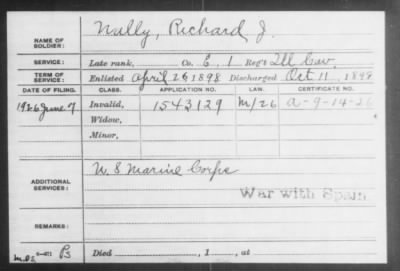 NAME OF SOLDIER: Nally, Richard J.
SERVICE: Late rank, Co. E, 1 Reg't Ill Cav.
TERM OF SERVICE: Enlisted April 26 1898 Discharged Oct 11, 1898
DATE OF FILING. CLASS. APPLICATION NO. LAW. CERTIFICATE NO.
1926 June 7 Invalid, 1543129 M/26 A-9-14-26
Widow,
Minor,
ADDITIONAL SERVICES: U. S Marine Corps
War with Spain
REMARKS:
Died , 1 , at